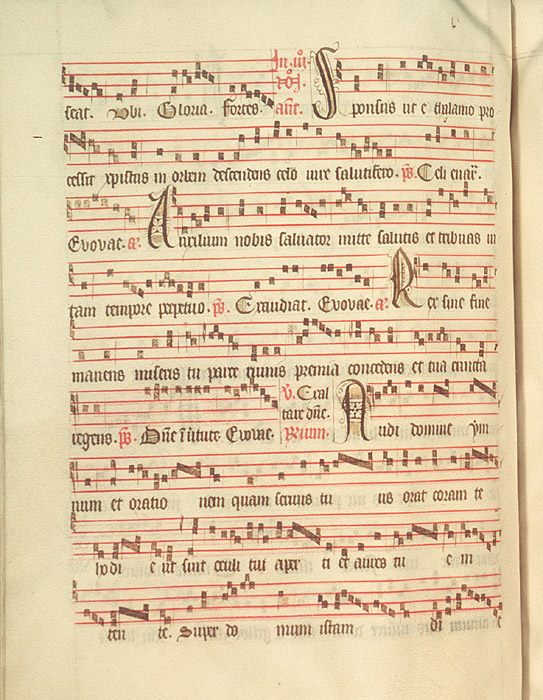 seat. Ubi. Gloria. fortes. In iii. noct. ant. Sponsus ut e thalamo pro
cessit xpistus in orbem descendens celo iure salutifero. ps. Celi enar.
Evovae. a. Auxilium nobis salvator mitte salutis et tribuas vi
tam tempore perpetuo. ps. Exaudiat. Evovae. a. Rex sine fine
manens miseris tu parce quibus premia concedens et tua cuncta
regens. ps. Dne i virtute Evovae. v. Exal tare dne. Audi domine ym
num et oratio nem quam servus tu us orat coram te
hodi e ut sint oculi tui aper ti et aures tu e in
ten te. Super do mum istam di e